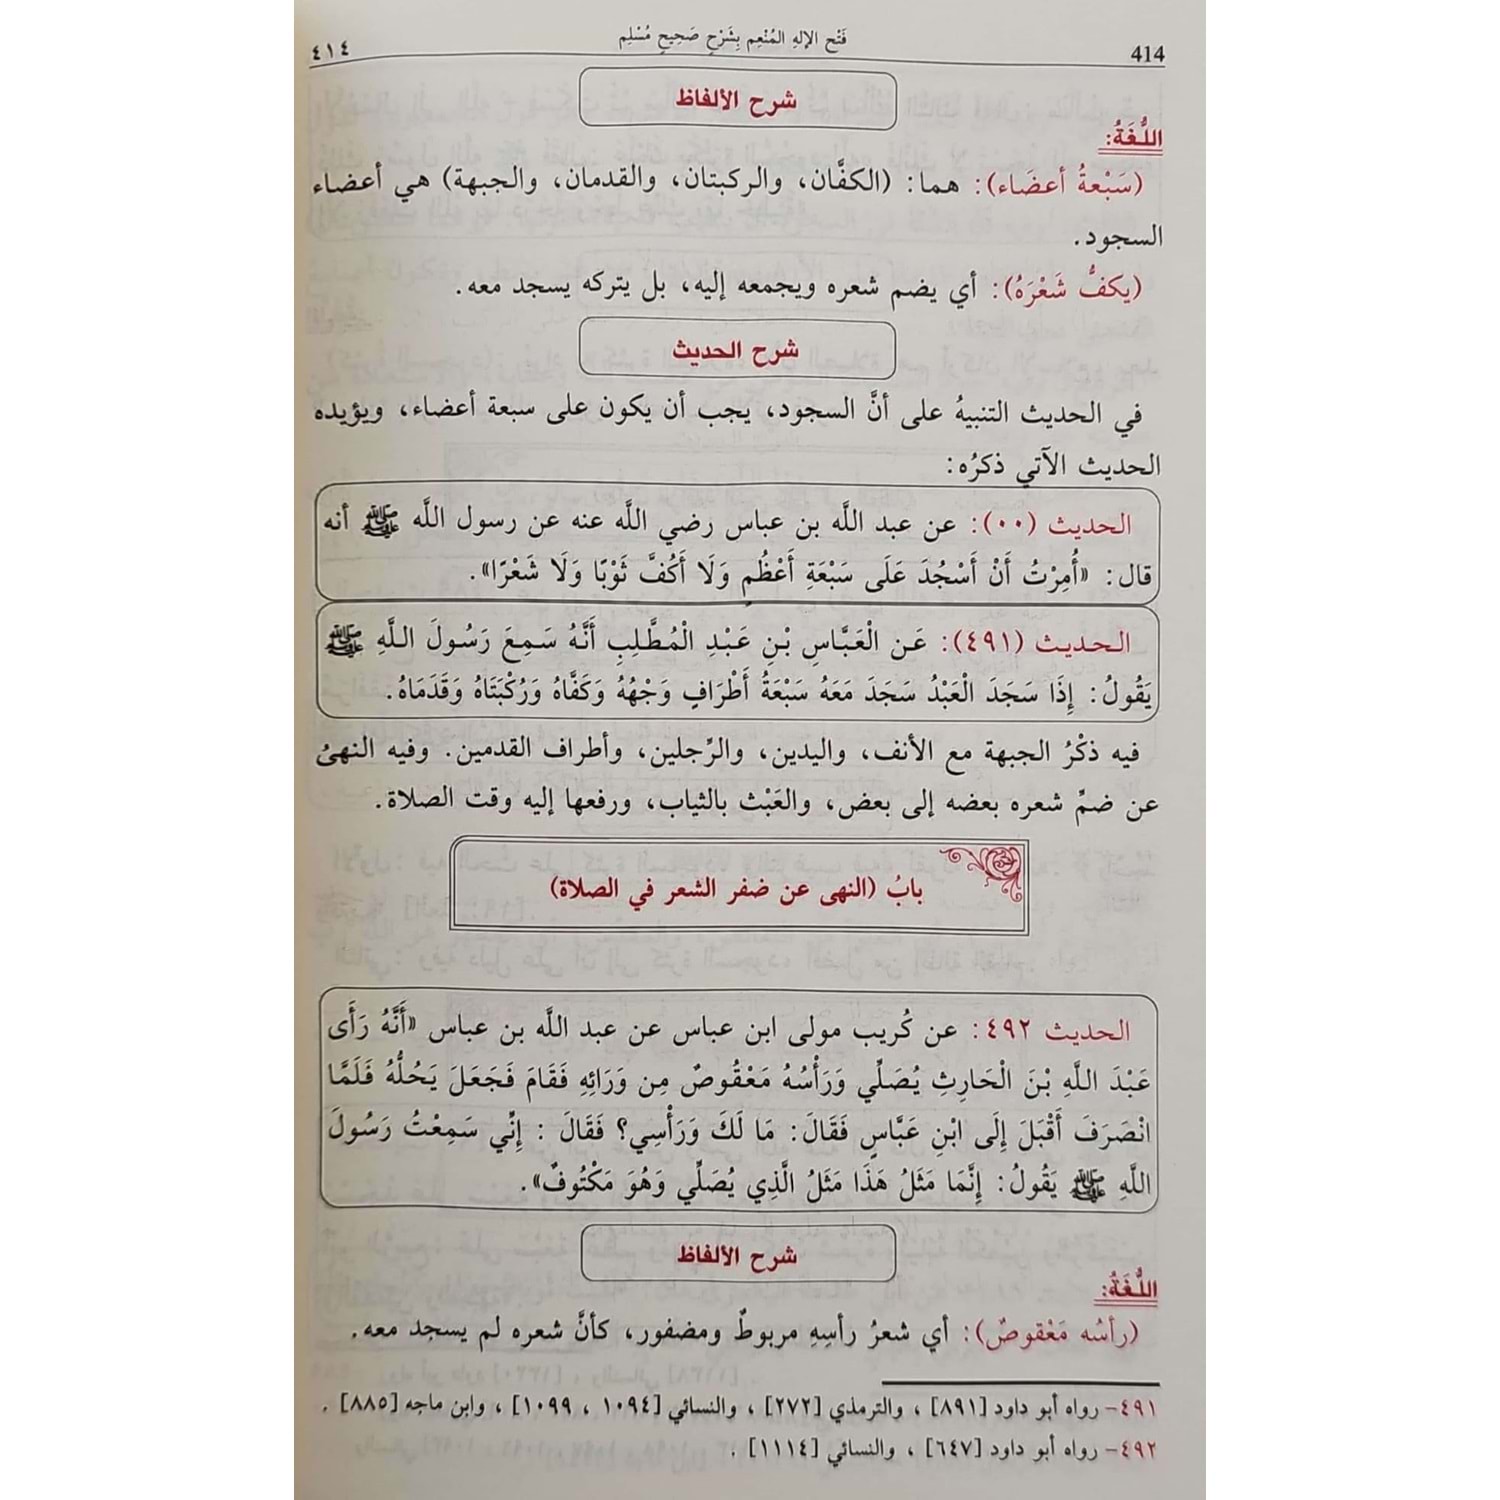 414 فَتْح الإلهِ المُنْعِم بِشَرْحِ صَحِيحِ مُسْلِم ٤١٤
شرح الألفاظ
اللُّغَةُ:
(سَبْعةُ أعضَاء): هما: (الكفَّان، والركبتان، والقدمان، والجبهة) هي أعضاء
السجود.
(يكفُّ شَعْرَهُ): أي يضم شعره ويجمعه إليه، بل يتركه يسجد معه.
شرح الحديث
في الحديث التنبيهُ على أنَّ السجود، يجب أن يكون على سبعة أعضاء، ويؤيده
الحديث الآتي ذكرُه:
الحديث (٠٠): عن عبد اللَّه بن عباس رضي اللَّه عنه عن رسول اللَّه ﷺ أنه
قال: «أُمِرْتُ أَنْ أَسْجُدَ عَلَى سَبْعَةِ أَعْظُمٍ وَلَا أَكُفَّ ثَوْبًا وَلَا شَعْرًا».
الحديث (٤٩١): عَن الْعَبَّاسِ بْنِ عَبْدِ الْمُطَّلِبِ أَنَّهُ سَمِعَ رَسُولَ اللَّهِ ﷺ
يَقُولُ: إِذَا سَجَدَ الْعَبْدُ سَجَدَ مَعَهُ سَبْعَةُ أَطْرَافٍ وَجْهُهُ وَكَفَّاهُ وَرُكْبَتَاهُ وَقَدَمَاهُ.
فيه ذكْرُ الجبهة مع الأنف، واليدين، والرِّجلين، وأطراف القدمين. وفيه النهىُ
عن ضمِّ شعره بعضه إلى بعض، والعَبْث بالثياب، ورفعها إليه وقت الصلاة.
بابُ (النهى عن ضفر الشعر في الصلاة)
الحديث ٤٩٢: عن كُريب مولى ابن عباس عن عبد اللَّه بن عباس «أَنَّهُ رَأَى
عَبْدَ اللَّهِ بْنَ الْحَارِثِ يُصَلِّي وَرَأْسُهُ مَعْقُوصٌ مِن وَرَائِهِ فَقَامَ فَجَعَلَ يَحُلُّهُ فَلَمَّا
انْصَرَفَ أَقْبَلَ إِلَى ابْنِ عَبَّاسٍ فَقَالَ: مَا لَكَ وَرَأْسِي؟ فَقَالَ : إِنِّي سَمِعْتُ رَسُولَ
اللَّهِ ﷺ يَقُولُ: إِنَّمَا مَثَلُ هَذَا مَثَلُ الَّذِي يُصَلِّي وَهُوَ مَكْتُوفٌ».
شرح الألفاظ
اللُّغَةُ:
(رأسُه مَعْقوصٌ): أي شعرُ رأسِهِ مربوطٌ ومضفور، كأنَّ شعره لم يسجد معه.
٤٩١- رواه أبو داود [٨٩١] ، والترمذي [٢٧٢] ، والنسائي [١٠٩٤ ، ١٠٩٩] ، وابن ماجه [٨٨٥] .
٤٩٢- رواه أبو داود [٦٤٧] ، والنسائي [١١١٤] .